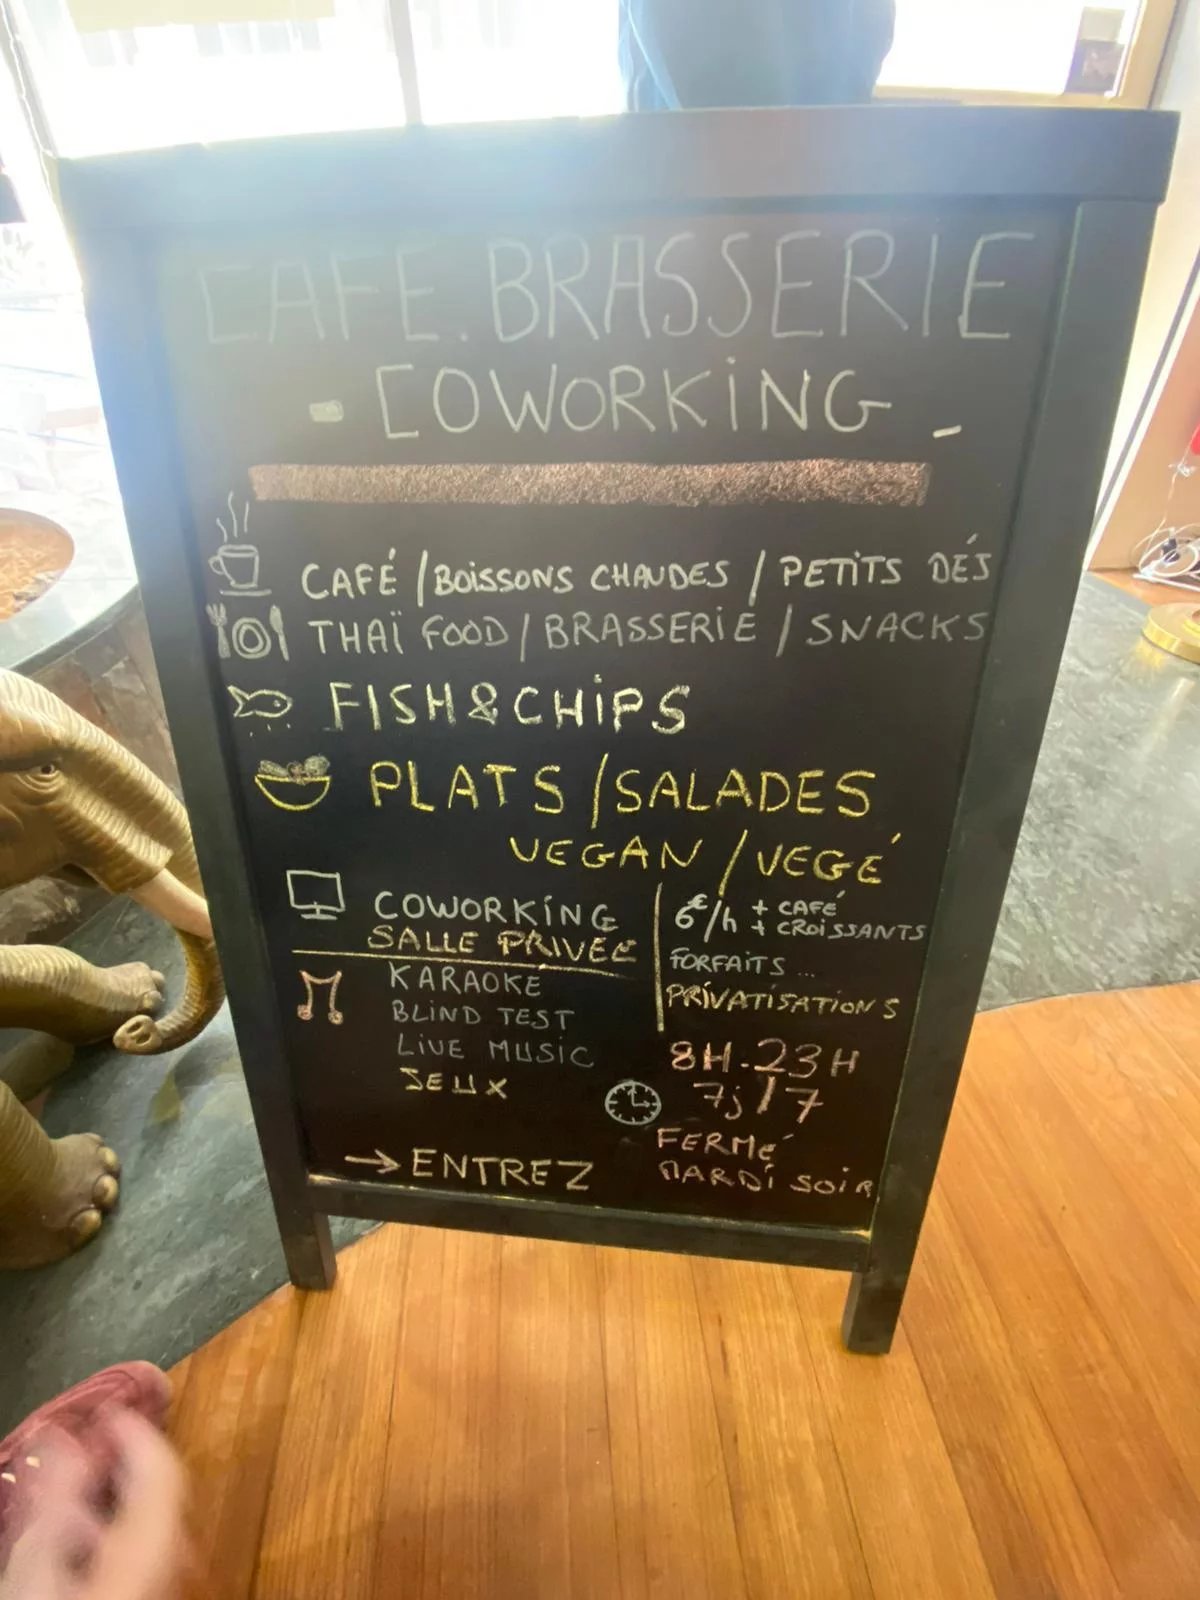 CAFE.BRASSERIE
- COWORKING -
CAFÉ / BOISSONS CHAUDES / PETITS DÉJ
THAÏ FOOD / BRASSERIE / SNACKS
FISH&CHIPS
PLATS / SALADES
VEGAN / VEGÉ
COWORKING
SALLE PRIVEE
6€/h + CAFÉ
+ CROISSANTS
FORFAITS ...
PRIVATISATIONS
KARAOKE
BLIND TEST
LIVE MUSIC
JEUX
8H-23H
7j/7
FERMÉ
MARDI SOIR
→ ENTREZ